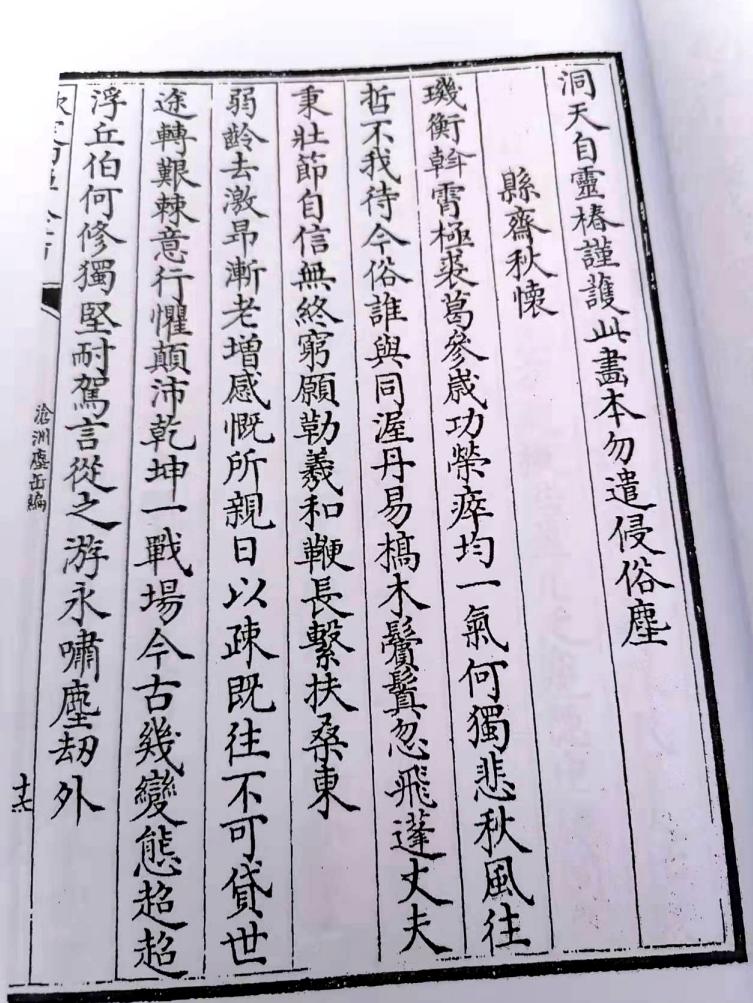 洞天自靈椿謹護此畫本勿遣侵俗塵
縣齋秋懷
璣衡斡霄極裘葛參歳功榮瘁均一氣何獨悲秋風往
哲不我待今俗誰與同渥丹易槁木鬢鬒忽飛蓬丈夫
秉壯節自信無終窮願勒羲和鞭長繫扶桑東
弱齡去激昂漸老增感慨所親日以疎既往不可貸世
途轉艱棘意行懼顛沛乾坤一戰場今古幾變態超超
浮丘伯何修獨堅耐駕言從之游永嘯塵刼外
滄洲塵缶編
十六